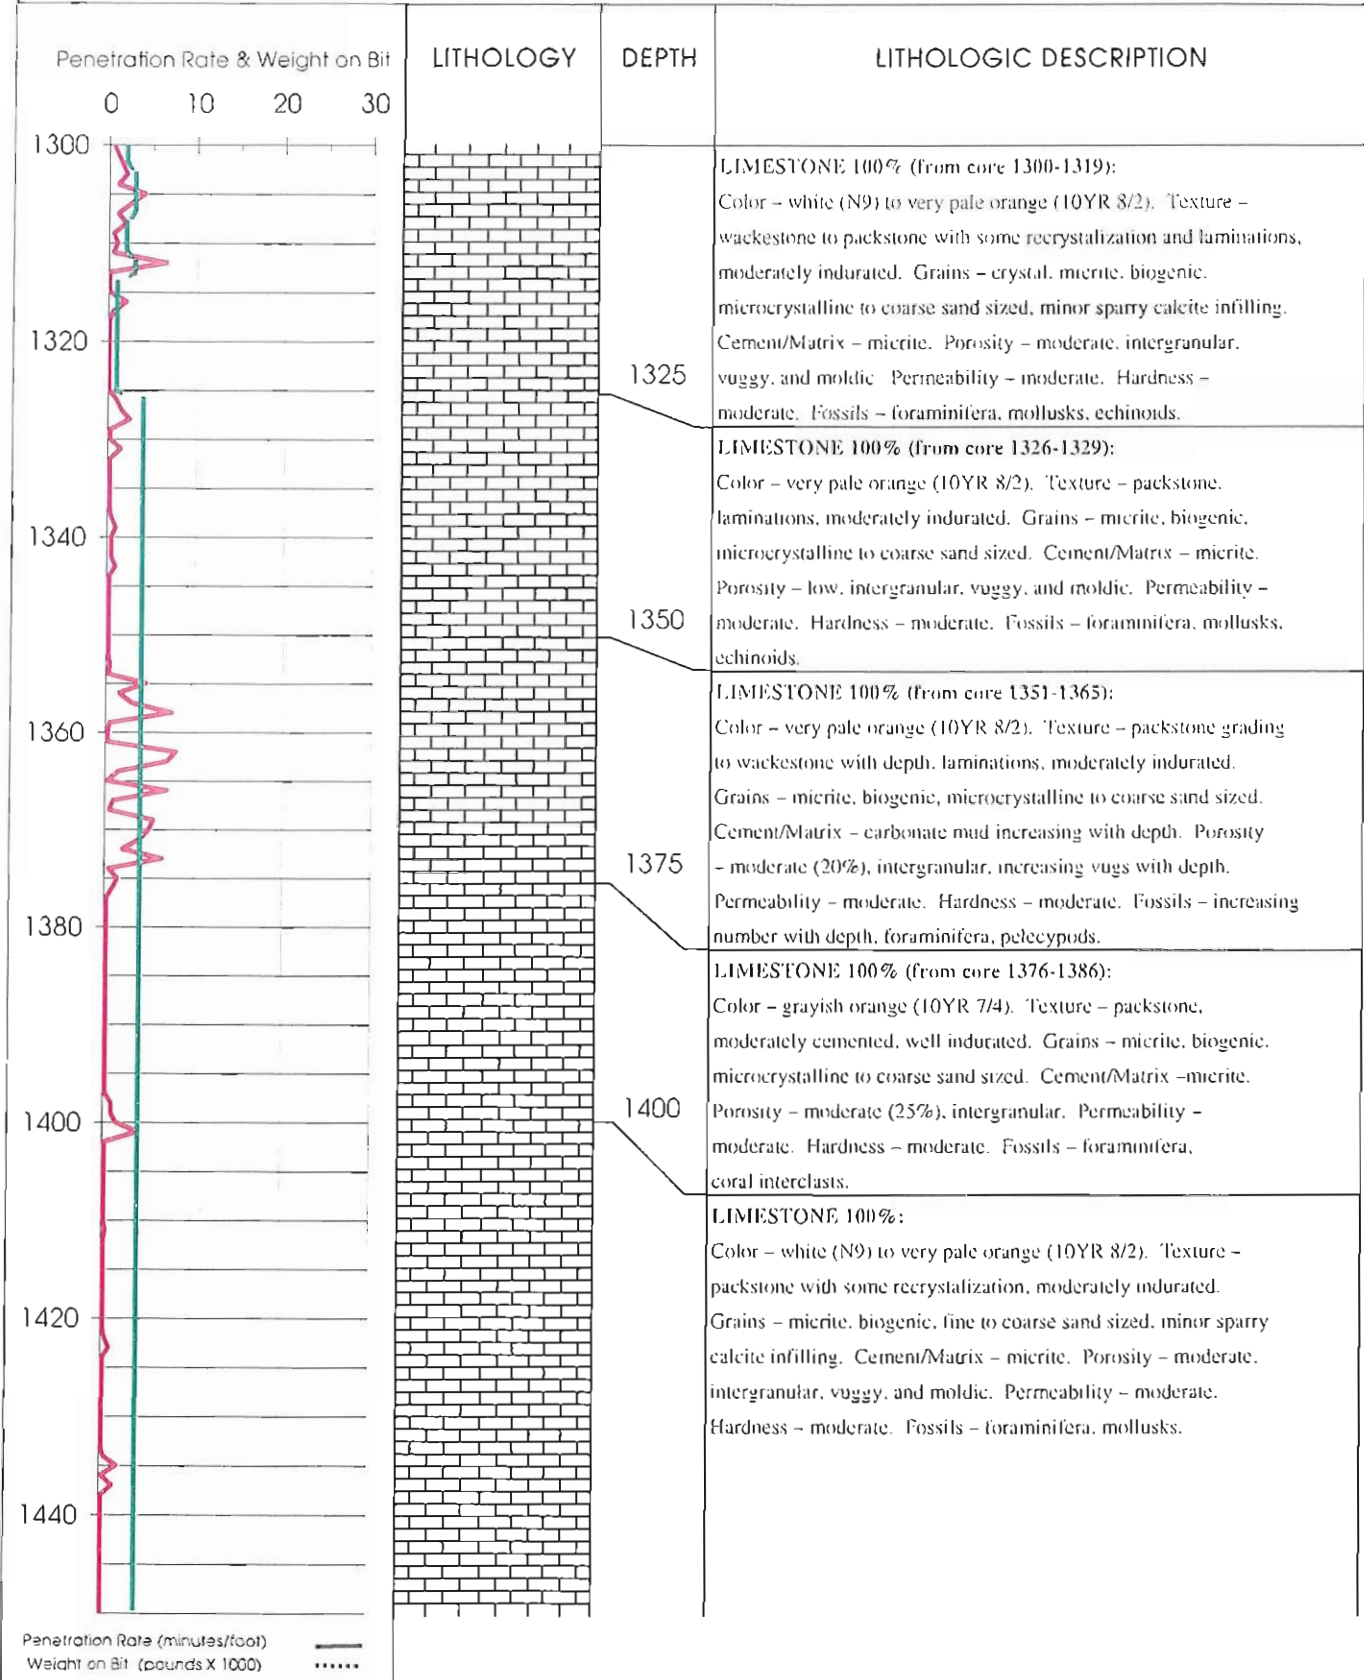 Penetration Rate & Weight on Bit
LITHOLOGY
DEPTH
LITHOLOGIC DESCRIPTION
0 10 20 30
1300
1320
1340
1360
1380
1400
1420
1440
1325
1350
1375
1400
LIMESTONE 100% (from core 1300-1319):
Color – white (N9) to very pale orange (10YR 8/2). Texture –
wackestone to packstone with some recrystalization and laminations,
moderately indurated. Grains – crystal, micrite, biogenic,
microcrystalline to coarse sand sized, minor sparry calcite infilling.
Cement/Matrix – micrite. Porosity – moderate, intergranular,
vuggy, and moldic Permeability – moderate. Hardness –
moderate. Fossils – foraminifera, mollusks, echinoids.
LIMESTONE 100% (from core 1326-1329):
Color – very pale orange (10YR 8/2). Texture – packstone,
laminations, moderately indurated. Grains – micrite, biogenic,
microcrystalline to coarse sand sized. Cement/Matrix – micrite.
Porosity – low, intergranular, vuggy, and moldic. Permeability –
moderate. Hardness – moderate. Fossils – foraminifera, mollusks,
echinoids.
LIMESTONE 100% (from core 1351-1365):
Color – very pale orange (10YR 8/2). Texture – packstone grading
to wackestone with depth, laminations, moderately indurated.
Grains – micrite, biogenic, microcrystalline to coarse sand sized.
Cement/Matrix – carbonate mud increasing with depth. Porosity
– moderate (20%), intergranular, increasing vugs with depth.
Permeability – moderate. Hardness – moderate. Fossils – increasing
number with depth, foraminifera, pelecypods.
LIMESTONE 100% (from core 1376-1386):
Color – grayish orange (10YR 7/4). Texture – packstone,
moderately cemented, well indurated. Grains – micrite, biogenic,
microcrystalline to coarse sand sized. Cement/Matrix –micrite.
Porosity – moderate (25%), intergranular. Permeability –
moderate. Hardness – moderate. Fossils – foraminifera,
coral interclasts.
LIMESTONE 100%:
Color – white (N9) to very pale orange (10YR 8/2). Texture –
packstone with some recrystalization, moderately indurated.
Grains – micrite, biogenic, fine to coarse sand sized, minor sparry
calcite infilling. Cement/Matrix – micrite. Porosity – moderate,
intergranular, vuggy, and moldic. Permeability – moderate.
Hardness – moderate. Fossils – foraminifera, mollusks.
Penetration Rate (minutes/foot)
Weight on Bit (pounds X 1000)